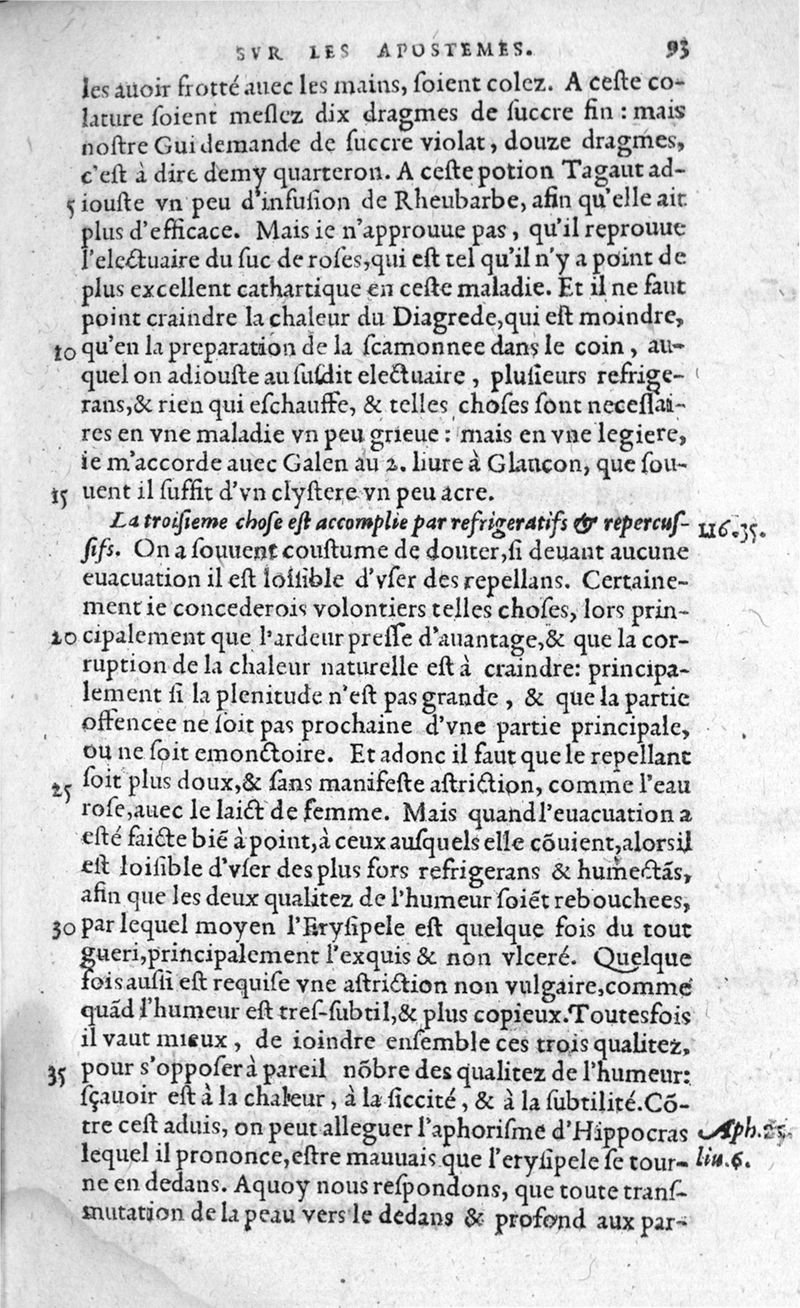 SVR LES APOSTEMES. 93
les auoir frotté auec les mains, ſoient colez. A ceſte co-
lature ſoient meſlez dix dragmes de ſuccre fin : mais
noſtre Gui demande de ſuccre violat, douze dragmes,
c'eſt à dire demy quarteron. A ceſte potion Tagaut ad-
5 iouſte vn peu d'infuſion de Rheubarbe, afin qu'elle ait
plus d'efficace. Mais ie n'approuue pas, qu'il reprouue
l'electuaire du ſuc de roſes, qui eſt tel qu'il n'y a point de
plus excellent cathartique en ceſte maladie. Et il ne faut
point craindre la chaleur du Diagrede, qui eſt moindre,
10 qu'en la preparation de la ſcamonnee dans le coin, au-
quel on adiouſte au ſuſdit electuaire, pluſieurs refrige-
rans, & rien qui eſchauffe, & telles choſes ſont neceſſai-
res en vne maladie vn peu grieue : mais en vne legiere,
ie m'accorde auec Galen au 2. liure à Glaucon, que ſou-
15 uent il ſuffit d'vn clyſtere vn peu acre.
La troiſieme choſe eſt accomplie par refrigeratifs & repercuſ- 116.35.
ſifs. On a ſouuent couſtume de douter, ſi deuant aucune
euacuation il eſt loiſible d'vſer des repellans. Certaine-
ment ie concederois volontiers telles choſes, lors prin-
20 cipalement que l'ardeur preſſe d'auantage, & que la cor-
ruption de la chaleur naturelle eſt à craindre: principa-
lement ſi la plenitude n'eſt pas grande, & que la partie
offencee ne ſoit pas prochaine d'vne partie principale,
ou ne ſoit emonctoire. Et adonc il faut que le repellant
25 ſoit plus doux, & ſans manifeſte aſtriction, comme l'eau
roſe, auec le laict de femme. Mais quand l'euacuation a
eſté faicte biē à point, à ceux auſquels elle cōuient, alors il
eſt loiſible d'vſer des plus fors refrigerans & humectās,
afin que les deux qualitez de l'humeur ſoiēt rebouchees,
30 par lequel moyen l'Eryſipele eſt quelque fois du tout
gueri, principalement l'exquis & non vlceré. Quelque
fois auſſi eſt requiſe vne aſtriction non vulgaire, comme
quād l'humeur eſt treſ-ſubtil, & plus copieux. Toutesfois
il vaut mieux, de ioindre enſemble ces trois qualitez,
35 pour s'oppoſer à pareil nōbre des qualitez de l'humeur:
ſçauoir eſt à la chaleur, à la ſiccité, & à la ſubtilité. Cō-
tre ceſt aduis, on peut alleguer l'aphoriſme d'Hippocras Aph. 25.
lequel il prononce, eſtre mauuais que l'eryſipele ſe tour- liu. 6.
ne en dedans. Aquoy nous reſpondons, que toute tranſ-
mutation de la peau vers le dedans & profond aux par-